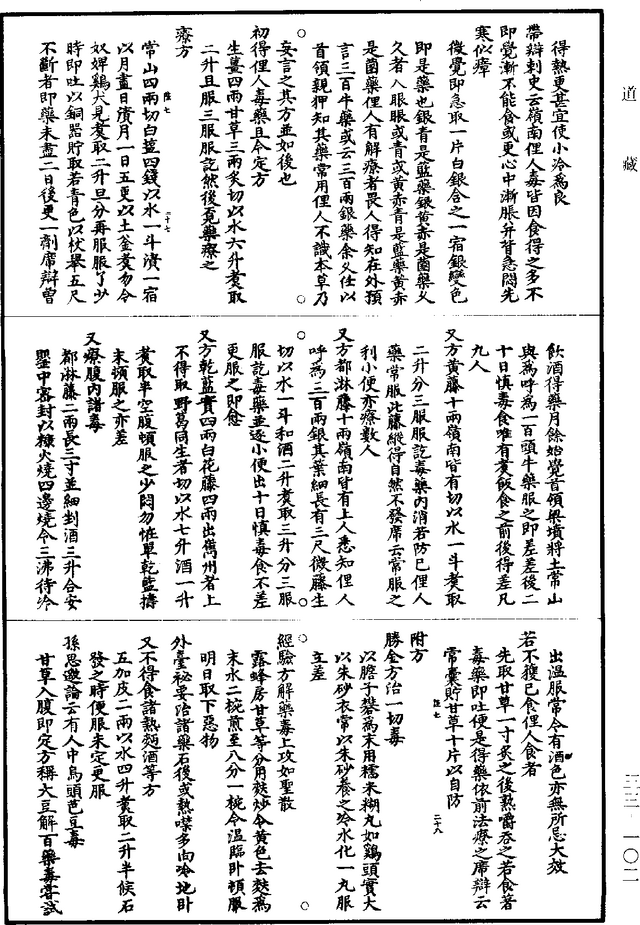 道藏
得熱更甚宜使小冷爲良
帶辯刺史云嶺南俚人毒皆因食得之多不
即覺漸不能食或更心中漸脹并背急悶先
寒似瘴
微覺即急取一片白銀含之一宿銀變色
即是藥也銀青是藍藥銀黃赤是菌藥久
久者入眼眼或青或黃赤青是藍藥黃赤
是菌藥俚人有解療者畏人得知在外預
言三百牛藥或云三百兩銀藥余久任以
首領親狎知其藥常用俚人不識本草乃
妄言之其方並如後也
初得俚人毒藥且令定方
生薑四兩甘草三兩炙切以水六升煮取
二升旦服三服服訖然後覓藥療之
療方
常山四兩切白鹽四錢以水一斗漬一宿
以月盡日漬月一日五更以土釜煮勿令
奴婢鷄犬見煮取二升旦分再服服了少
時即吐以銅器貯取若青色以杖舉五尺
不斷者即藥未盡二日後更一劑席辯曾
陸七
二十七
飲酒得藥月餘始覺首領梁墳將土常山
與爲呼爲一百頭牛藥服之即差差後二
十日慎毒食唯有煮飯食之前後得差凡
九人
又方黃藤十兩嶺南皆有切以水一斗煮取
二升分三服服訖毒藥內消若防已俚人
藥常服此藤縱得自然不發席云常服之
利小便亦療數人
又方都淋藤十兩嶺南皆有土人悉知俚人
呼爲三百兩銀其葉細長有三尺微藤生
切以水一斗和酒二升煮取三升分三服
服訖毒藥並逐小便出十日慎毒食不差
更服之即愈
又方乾藍實四兩白花藤四兩出嶲州者上
不得取野葛同生者切以水七升酒一升
煮取半空腹頓服之少悶勿恠單乾藍擣
末頓服之亦差
又療腹內諸毒
都淋藤二兩長三寸並細剉酒三升合安
罌中密封以糠火燒四邊燒令三沸待冷
出溫服常令有酒色亦無所忌大效
若不獲已食俚人食者
先取甘草一寸炙之後熟嚼吞之若食著
毒藥即吐便是得藥依前法療之席辯云
常囊貯甘草十片以自防
陸七
二十八
附方
勝金方治一切毒
以膽子礬爲末用糯米糊丸如鷄頭實大
以朱砂衣常以朱砂養之冷水化一丸服
立差
經驗方解藥毒上攻如聖散
露蜂房甘草等分用麩炒令黃色去麩爲
末水二椀煎至八分一椀令溫臨卧頓服
明日取下惡物
外臺祕要治諸藥石後或熱噤多向冷地卧
又不得食諸熱麫酒等方
五加皮二兩以水四升煮取二升半候石
發之時便服未定更服
孫思邈論云有人中烏頭芭豆毒
甘草入腹即定方稱大豆解百藥毒嘗試
三三・一〇二